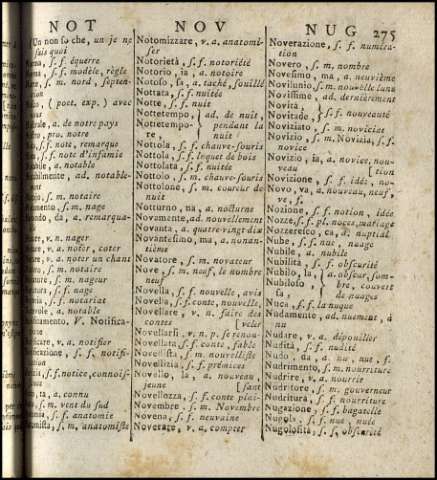 NOT
NOV
NUG 275
Un non so che, un je ne
sais quoi
s. f. équerre
s. f. modèle, règle
s. m. nord, septen-
(poet. exp.) avec
a. de notre pays
pro. notre
s. f. note, remarque
s. f. note d'infamie
a. notable
ad. notable-
s. m. notaire
s. m. nage
da, a. remarqua-
v. n. nager
v. a. noter, coter
v. a. noter un chant
s. m. notaire
s. m. nageur
s. f. natura
s. f. notariat
a. notable
V. Notifica-
v. a. notifier
s. f. notifi-
s. f. notice, connois-
ta, a. connu
s. m. vent du sud
s. f. anatomie
s. m. anatomiste
Notomizzare, v. a. anatomi-
ser
Notorietà, s. f. notoriété
Notorio, ia, a. notoire
Notoso, sa, a. taché, souillé
Nottata, s. f. nuitée
Notte, s. f. nuit
Nottetempo, ad. de nuit,
Nottetempo- pendant la
re, nuit
Nottola, s. f. chauve-souris
Nottola, s. f. loquet de bois
Nottolata, s. f. nuitée
Nottolo, s. m. chauve-souris
Nottolone, s. m. coureur de
nuit
Notturno, na, a. nocturne
Novamente, ad. nouvellement
Novanta, a. quatre-vingt-dix
Novantesimo, ma, a. nonan-
tième
Novatore, s. m. novateur
Nove, s. m. neuf, le nombre
neuf
Novella, s. f. nouvelle, avis
Novella, s. f. conte, nouvelle,
Novellare, v. n. faire des
contes [veler
Novellarsi, v. n. p. se renou-
Novellata, s. f. conte, fable
Novellista, s. m. nouvelliste
Novellizia, s. f. prémices
Novello, la, a. nouveau
jeune [sant
Novellozza, s. f. conte plai-
Novembre, s. m. Novembre
Novena, s. f. neuvaine
Noverare, v. a. compter
Noverazione, s. f. numéra-
tion
Novero, s. m. nombre
Novesimo, ma, a. neuvième
Novilunio, s. m. nouvelle lune
Novissime, ad. dernièrement
Novità,
Novitade, s. f. nouveauté
Noviziato, s. m. noviciat
Novizio, s. m. Novizia, s. f.
novice
Novizio, ia, a. novice, nou-
veau [tion
Novizione, s. f. idée, no-
Novo, va, a. nouveau, neuf,
ve, f.
Nozione, s. f. notion, idée
Nozze, s. f. pl. noces, mariage
Nozzereico, ca, a. nuptial
Nube, s. f. nue, nuage
Nubile, a. nubile
Nubilità, s. f. obscurité
Nubilo, la, a. obscur, som-
Nubiloso, bre, couvert
de nuages
Nuca, s. f. la nuque
Nudamente, ad. nuement, à
nu
Nudare, v. a. dépouiller
Nudità, s. f. nudité
Nudo, da, a. nu, nue, f.
Nudrimento, s. m. nourriture
Nudrire, v. a. nourrir
Nudritore, s. m. gouverneur
Nudritura, s. f. nourriture
Nugazione, s. f. bagatelle
Nugola, s. f. nue, nuée
Nugolosità, s. f. obscurité